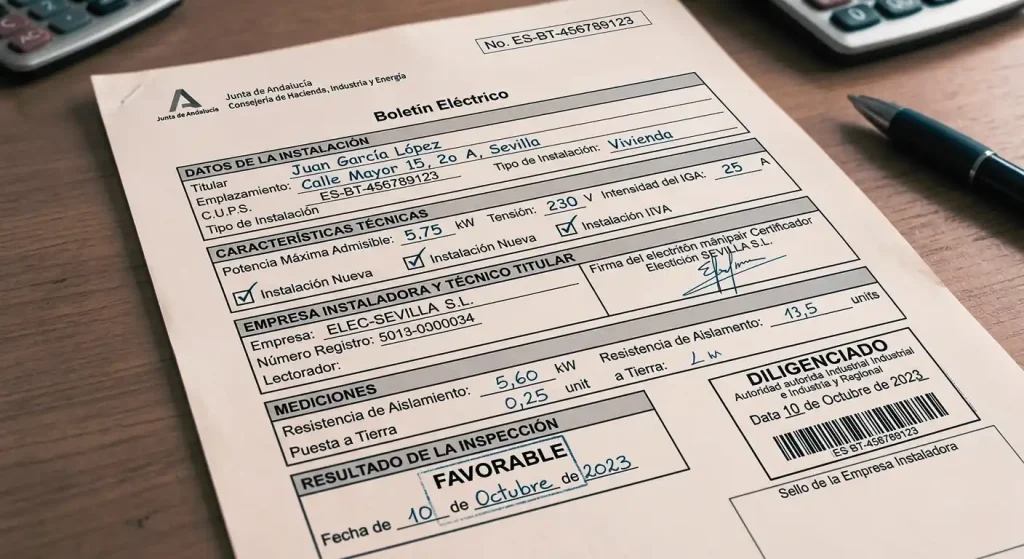 No. ES-BT-456789123
Junta de Andalucía
Junta de Andalucía
Consejeria de Hacienda, Industria y Energía
Boletín Eléctrico
DATOS DE LA INSTALACIÓN
Titular Juan García López
Emplazamiento: Calle Mayor 15, 2o A, Sevilla Tipo de Instalación: Vivienda
C.U.P.S. ES-BT-456789123
Tipo de Instalación
CARACTERÍSTICAS TÉCNICAS
Potencia Máxima Admisible: 5,75 kW Tensión: 230 V Intensidad del IGA: 25 A
Instalación Nueva Instalación Nueva Instalación IIVA
EMPRESA INSTALADORA Y TÉCNICO TITULAR
Empresa: ELEC-SEVILLA S.L.
Número Registro: 5013-0000034
Lectorador:
Firma del electritón mânipair Certificador
Electición SEVILLA S.L.
MEDICIONES
Resistencia de Aislamiento: 5,60 kW Resistencia de Aislamiento: 13,5 units
Puesta a Tierra 0,25 unit a Tierra:
RESULTADO DE LA INSPECCIÓN
FAVORABLE
Fecha de 10 de Octubre de 2023
DILIGENCIADO
Autoridad autorida Industrial Industrial
e Industria y Regional
Data 10 de Octubre de 2023
ES-BT-456789123
Sello de la Empresa Instaladora
AC
0